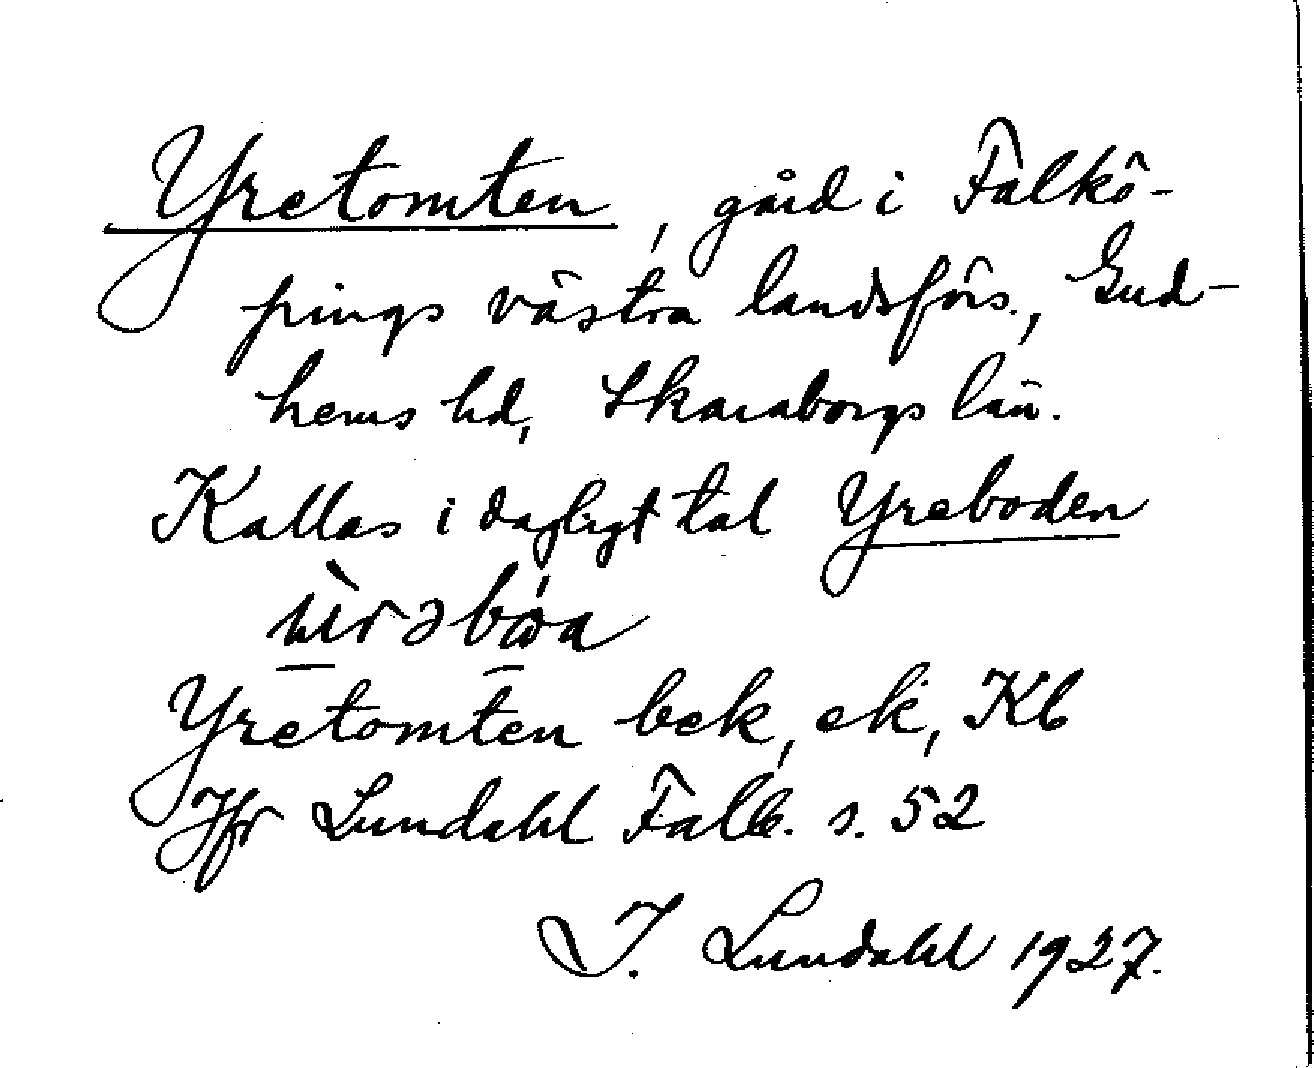 Yretomten, gård i Falkö-
pings västra landsförs., Gud-
hems hd, Skaraborgs län.
Kallas i dagligt tal Yreboden
Yretomten bek, ek, Kb
Jfr Lundahl Falb. s. 52
I. Lundahl 1927.